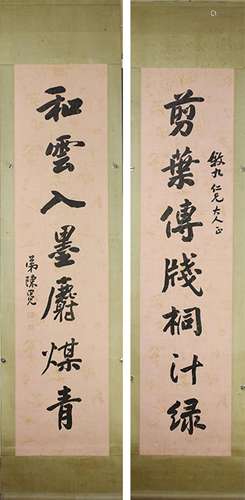 剪葉傳牋桐汁绿
敬九仁兄大人正
和雲入墨麝煤青
弟陳冕